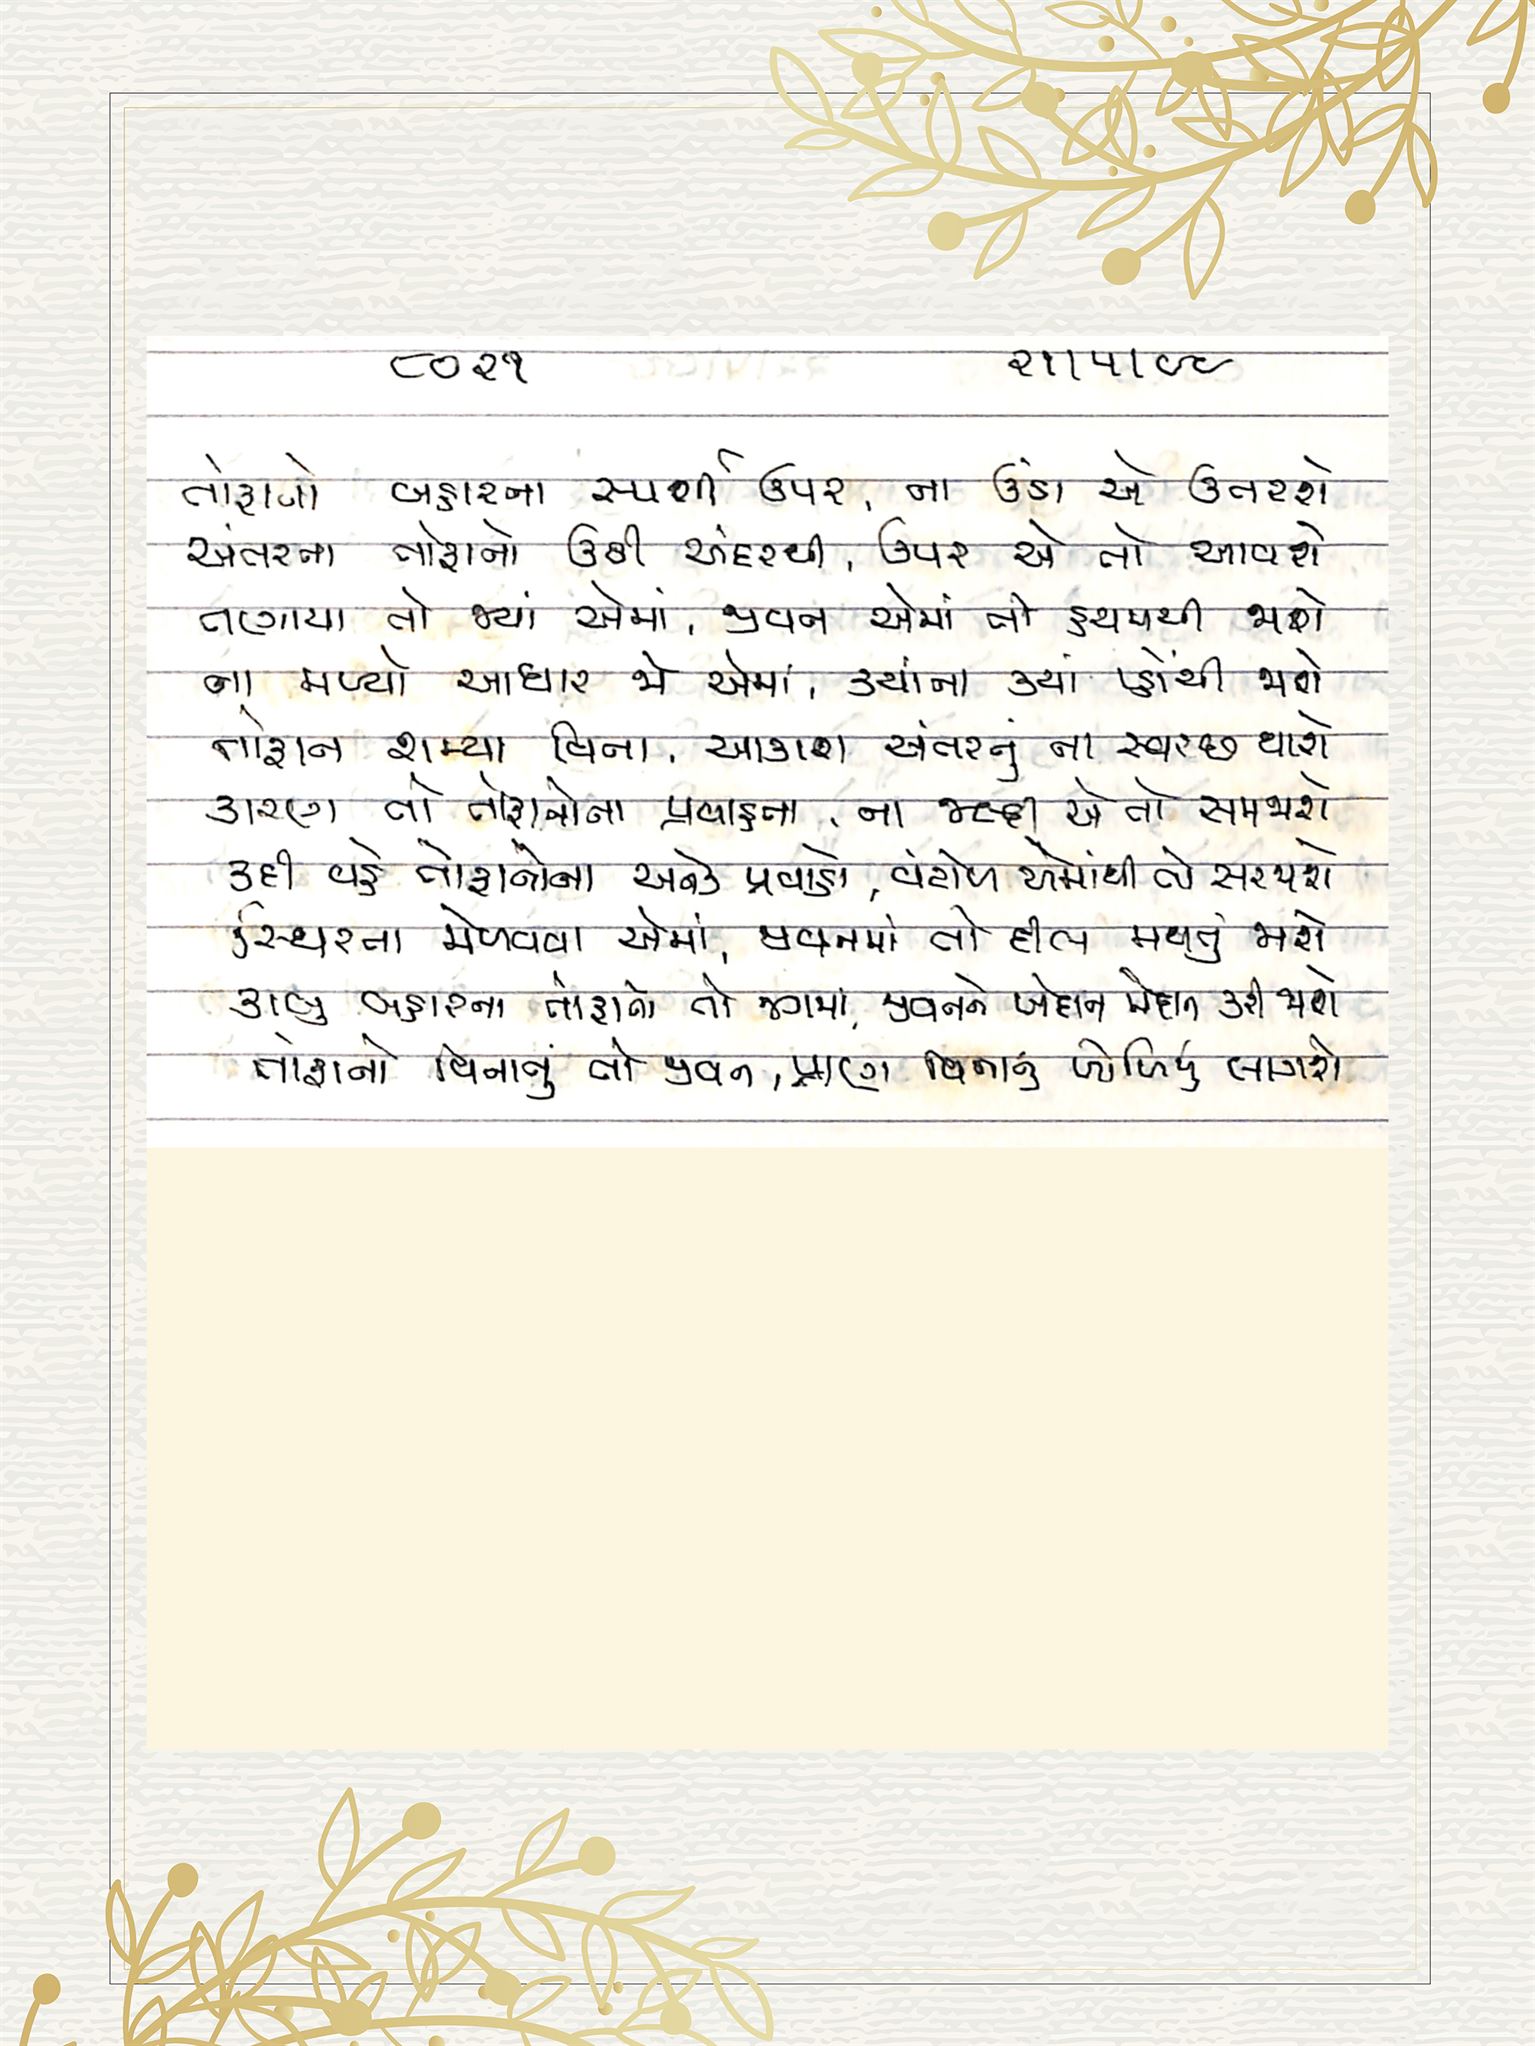 ૮૦૨૧ ૨૧/૫/૯૯
તોફાનો બહારના સ્પર્શી ઉપર, ના ઉંડા એ ઉતરશે
અંતરના તોફાનો ઉઠી અંદરથી, ઉપર એ તો આવશે
તણાયા તો જ્યાં એમાં, જીવન એમાં તો હચમચી જાશે
ના મળ્યો આધાર જો એમાં, ક્યાંના ક્યાં પ્હોંચી જાશે
તોફાન શમ્યા વિના, આકાશ અંતરનું ના સ્વચ્છ થાશે
કારણ તો તોફાનોના પ્રવાહના, ના જલ્દી એ તો સમજાશે
કદી વહે તોફાનોના અનેક પ્રવાહો, વંટોળ એમાંથી તો સરજાશે
સ્થિરતા મેળવવા એમાં, જીવનમાં તો દીલ મથતું જાશે
કાબુ બહારના તોફાનો તો જગમાં, જીવનને મેદાન કરી જાશે
તોફાનો વિનાનું તો જીવન, પ્રાણ વિનાનું ખોળિયું લાગશે